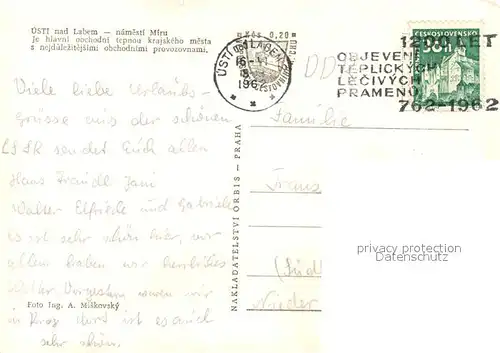 ÚSTÍ nad Labem — náměstí Míru
Je hlavní obchodní tepnou krajského města
s nejdůležitějšími obchodními provozovnami.
Kčs 0,20
ÚSTÍ LABEM
196
ČESKOSLOVENSKO
1200 LET
OBJEVENÍ
TEPLICKÝCH
LÉČIVÝCH
PRAMENŮ
762-1962
Viele liebe Urlaubs-
grüsse aus der schönen
ČSSR sendet Euch allen
Hans Traudl
Walter Elfriede und Gabriele
Es ist sehr schön hier, wir
alle haben wir herrliches
Wetter. waren wir
in Prag ist es auch
sehr schön.
Foto Ing. A. Miškovský
NAKLADATELSTVÍ ORBIS - PRAHA
Familie
Franz
Nieder
privacy protection
Datenschutz